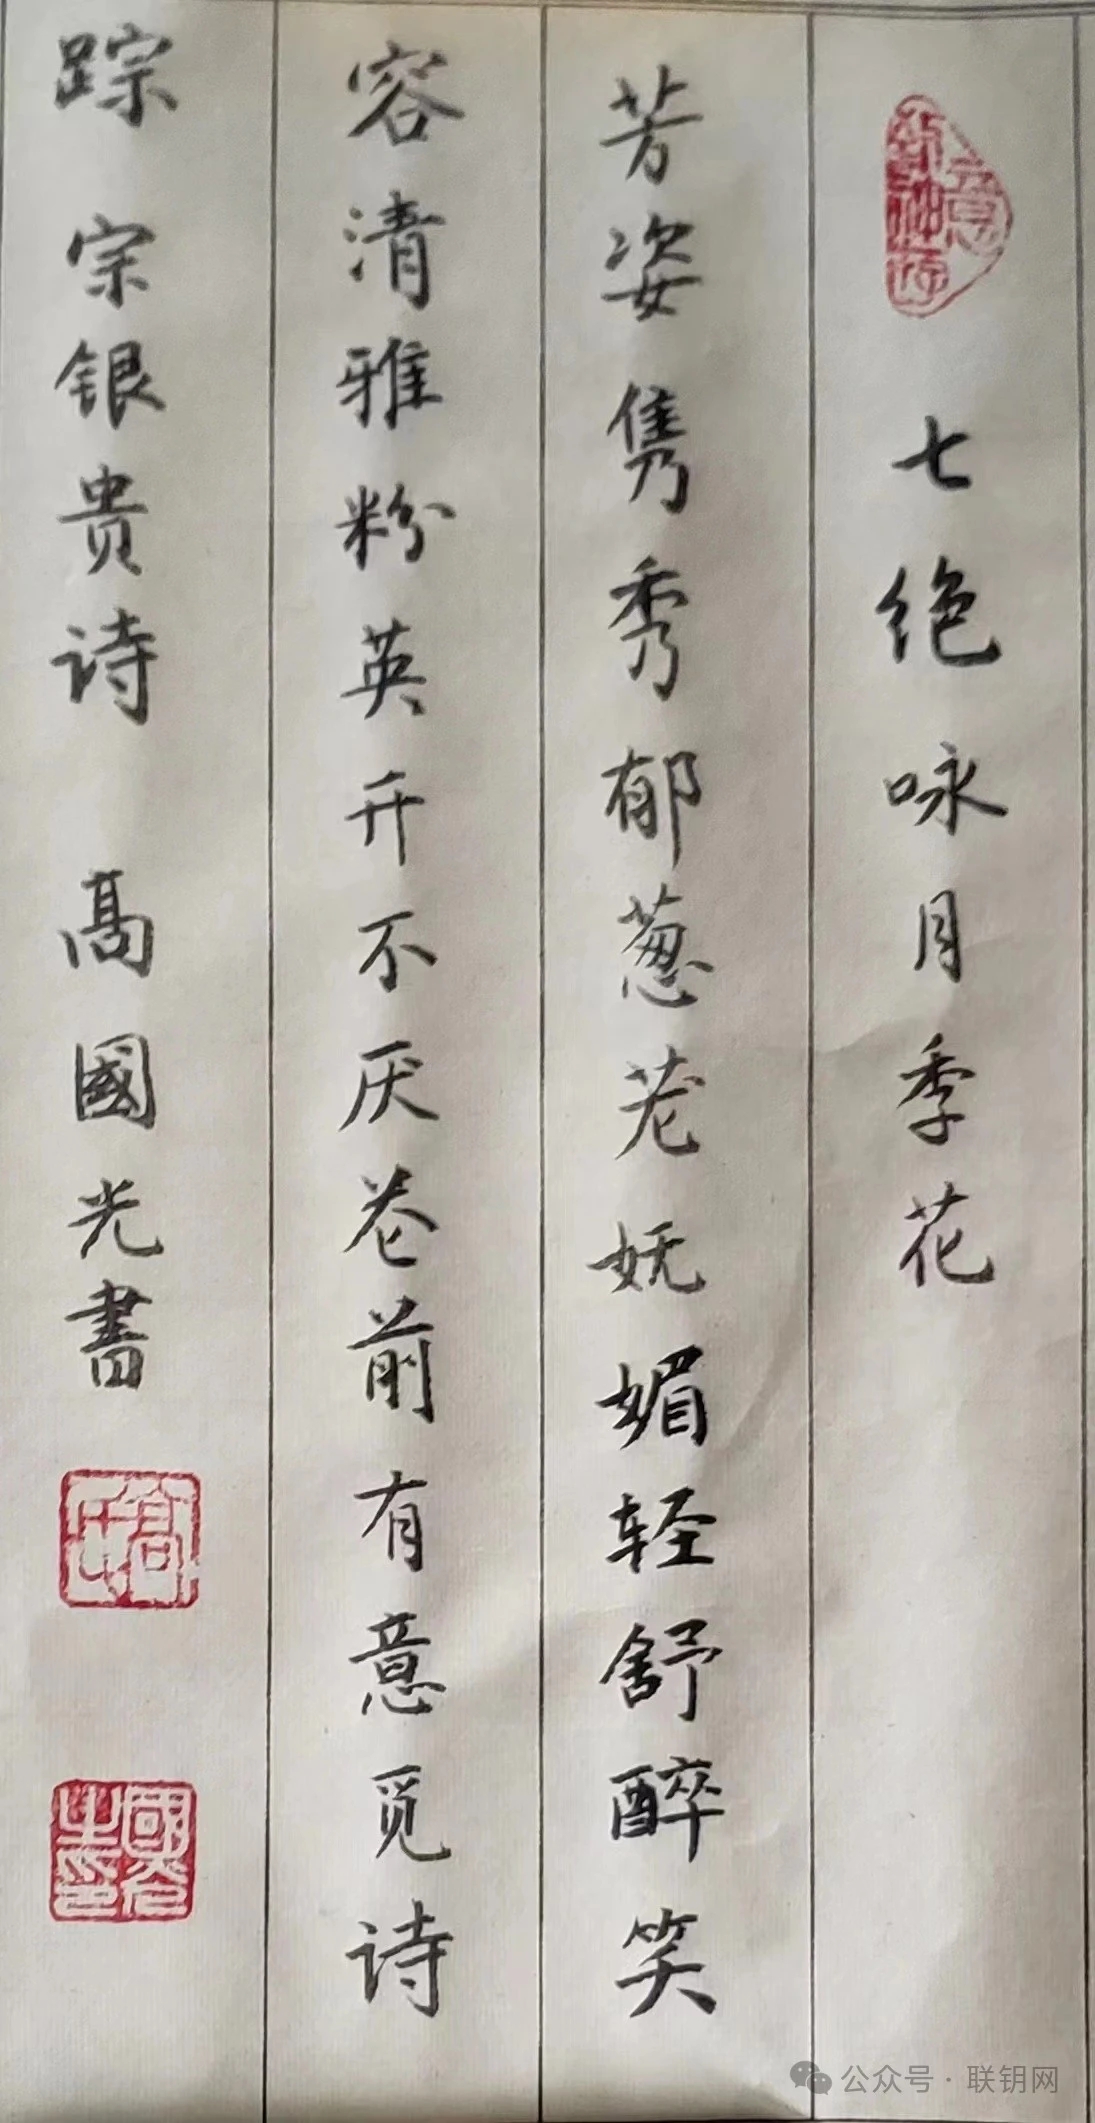 七绝咏月季花
芳姿隽秀郁葱茏妩媚轻舒醉笑
容清雅粉英开不厌卷前有意觅诗
踪 宗银贵诗 高國光書
高氏
國光之印
公众号·联钥网